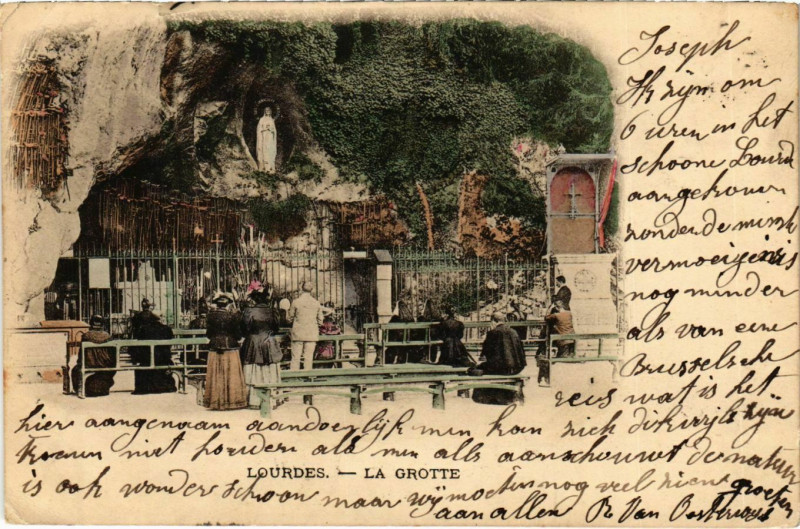 Joseph
Ik zijn om
6 uren in het
schoone Lourd
aangekomen
zonder de minste
vermoeigenis
nog minder
als van eene
Brusselsche
reis wat is het
hier aangenaam aandoerlijk men kan zich
niet houden als men alls aanschouwt de natuur
is ook wonder schoon maar wij moeten nog veel zien groeten
aan allen
LOURDES. — LA GROTTE